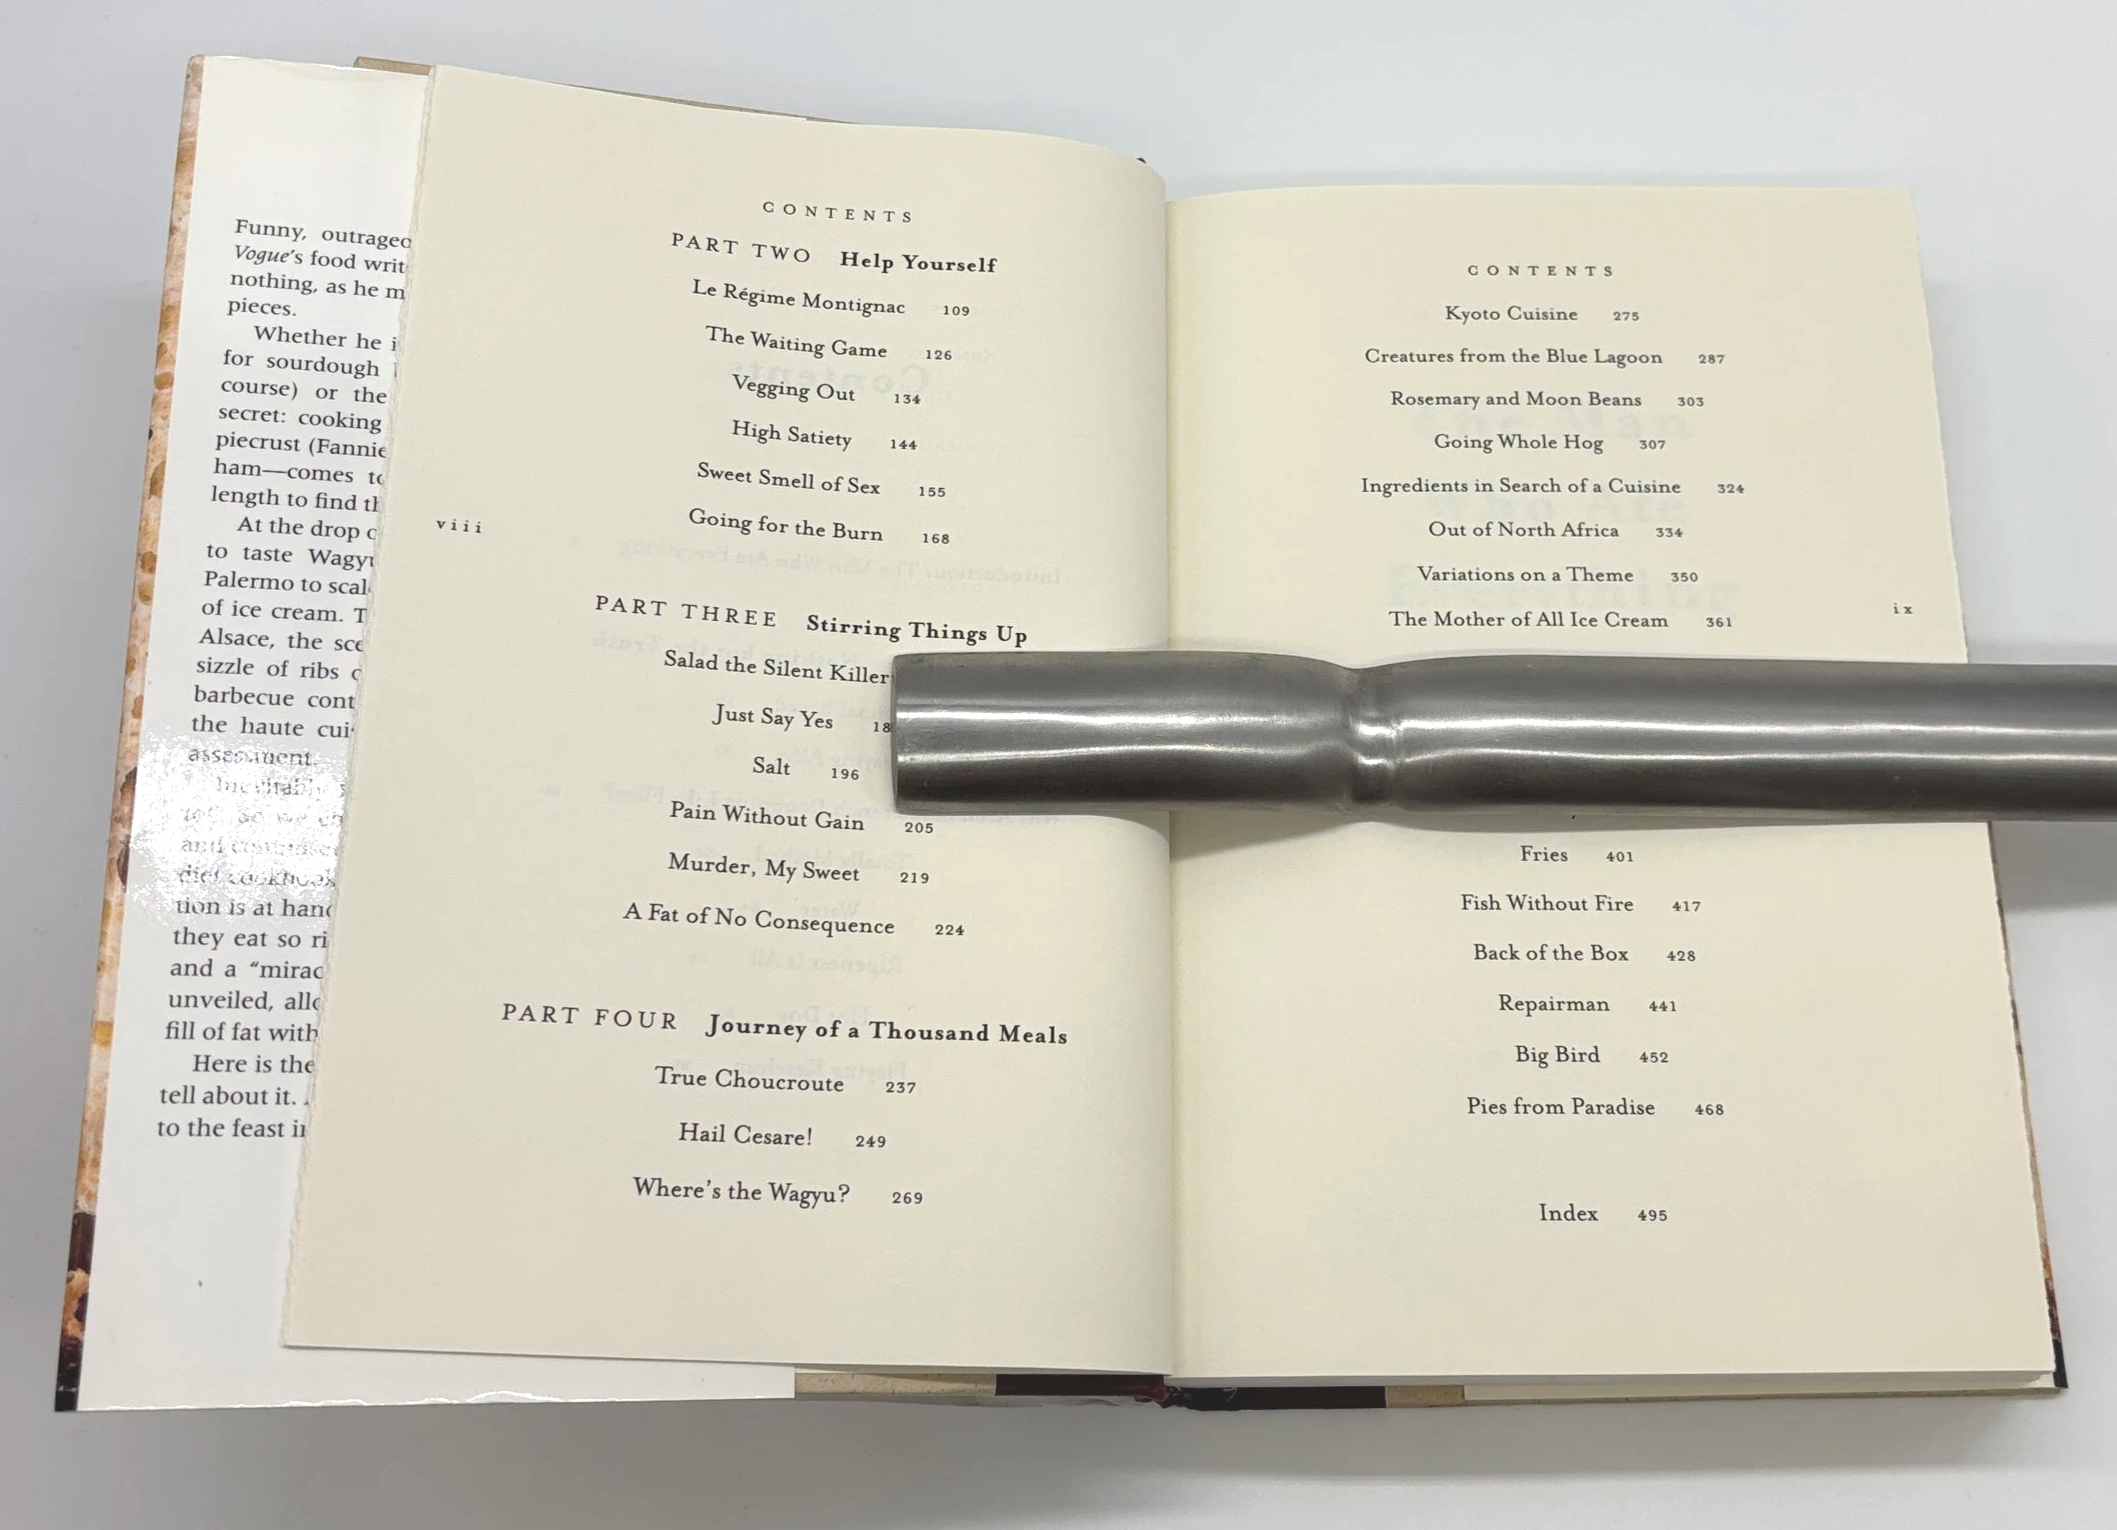 Funny, outrageo
Vogue's food writ
nothing, as he m
pieces.
Whether he i
for sourdough
course) or the
secret: cooking
piecrust (Fannie
ham—comes to
length to find th
At the drop o
to taste Wagyu
Palermo to scal
of ice cream. T
Alsace, the sce
sizzle of ribs c
barbecue cont
the haute cui
assessment.
Inevitably
and
diet cookbook
tion is at hand
they eat so ri
and a “mirac
unveiled, allo
fill of fat with
Here is the
tell about it.
to the feast in
CONTENTS
PART TWO Help Yourself
Le Régime Montignac 109
The Waiting Game 126
Vegging Out 134
High Satiety 144
Sweet Smell of Sex 155
Going for the Burn 168
viii
PART THREE Stirring Things Up
Salad the Silent Killer
Just Say Yes 18
Salt 196
Pain Without Gain 205
Murder, My Sweet 219
A Fat of No Consequence 224
PART FOUR Journey of a Thousand Meals
True Choucroute 237
Hail Cesare! 249
Where's the Wagyu? 269
CONTENTS
Kyoto Cuisine 275
Creatures from the Blue Lagoon 287
Rosemary and Moon Beans 303
Going Whole Hog 307
Ingredients in Search of a Cuisine 324
Out of North Africa 334
Variations on a Theme 350
The Mother of All Ice Cream 361
ix
Fries 401
Fish Without Fire 417
Back of the Box 428
Repairman 441
Big Bird 452
Pies from Paradise 468
Index 495